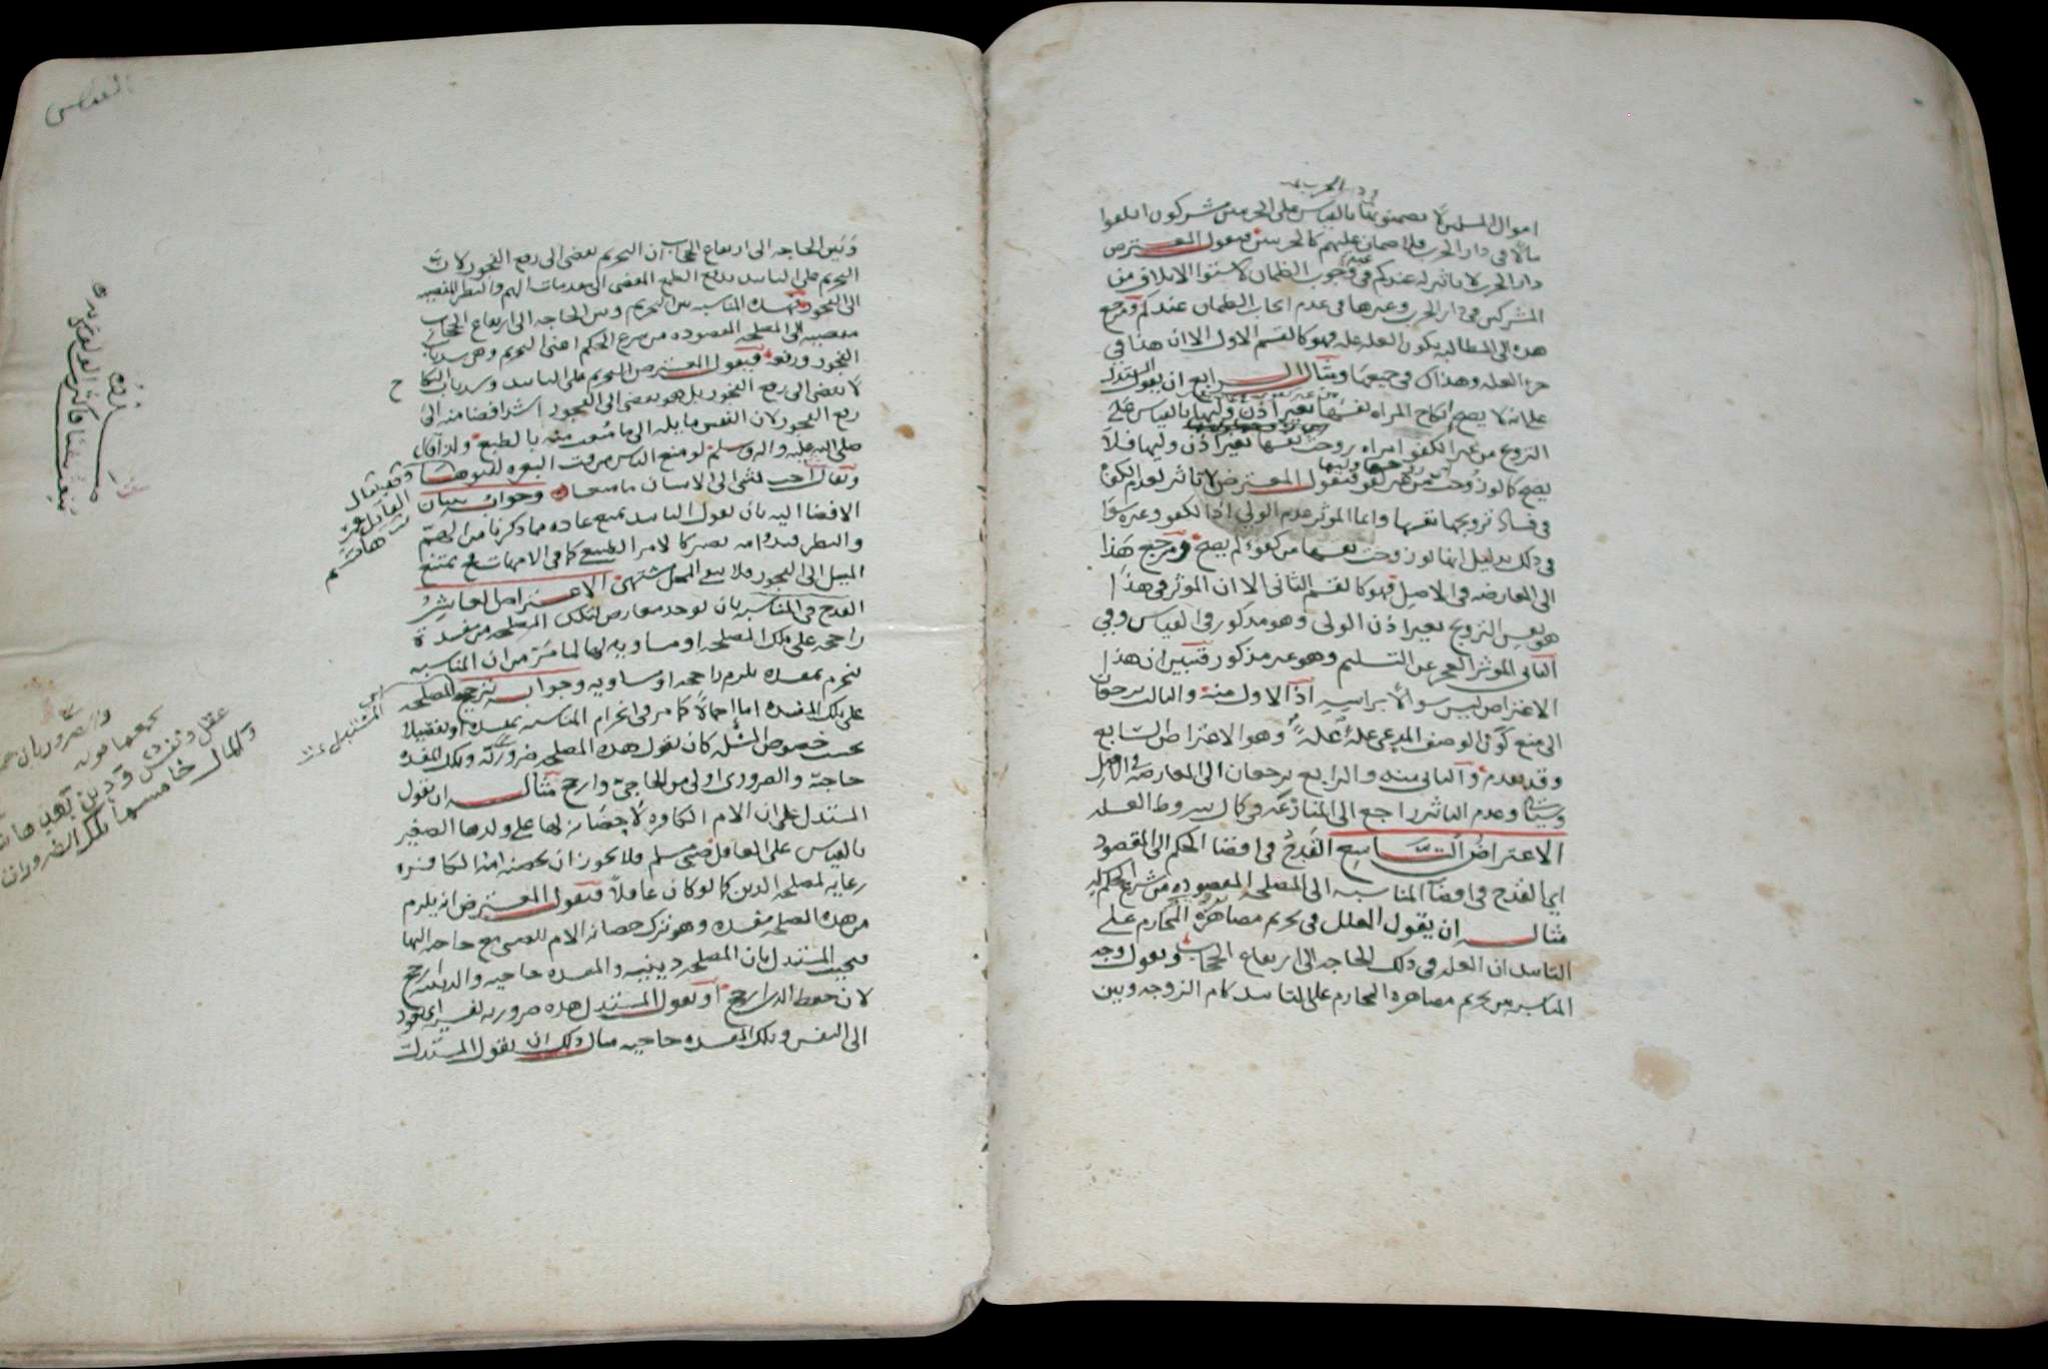 اموال المسلمين لا يضمنون بالقياس على الحربيين مشركون اتلفوا
مالا في دار الحرب فلا ضمان عليهم كالحربيين فيقول المعترض
دار الحرب لا تاثير له عندكم في وجوب الضمان لاستوا الاتلاف من
المشركين في دار الحرب وغيرها في عدم ايجاب الضمان عندكم ومرجع
هذه الى المطالبة بكون العلة علة فهو كالقسم الاول الا ان هذا في
جزء العلة وهذاك في جميعها ومثال الرابع ان يقول المستدل
على انه لا يصح انكاح المراه نفسها بغير اذن وليها بالقياس على
التزويج من غير الكفو امراه زوجت نفسها بغير اذن وليها فلا
يصح كما لو زوجت من غير كفو فيقول المعترض لا تاثير لعدم الكفاة
في فساد تزويجها نفسها وانما الموثر عدم الولي اذ الكفو وغيره سوا
في ذلك بدليل انها لو زوجت نفسها من كفو لم يصح ومرجع هذا
الى المعارضه في الاصل فهو كالقسم الثاني الا ان الموثر في هذا
هو نفس التزويج بغير اذن الولي وهو مذكور في القياس وفي
الثاني الموثر العجز عن التسليم وهو غير مذكور فتبين ان هذا
الاعتراض ليس سوالا براسه اذ الاول منه والثالث يرجعان
الى منع كون الوصف المدعى علة علة وهو الاعتراض السابع
وقد تقدم والثاني منه والرابع يرجعان الى المعارضة في الاصل
وسياتي وعدم التاثير راجع الى المنازعة في كمال شروط العلة
الاعتراض التاسع القدح في افضا الحكم الى المقصود
اي القدح في افضا المناسبه الى المصلحه المقصوده من شرع الحكم له
مثالـه ان يقول المعلل في تحريم مصاهرة المحارم على
التابيد ان العله في ذلك الحاجه الى ارتفاع الحجاب ويقول وجه
المناسبه بين تحريم مصاهرة المحارم على التابيد كام الزوجه وبين
وبين الحاجه الى ارتفاع الحجاب ان التحريم يفضي الى رفع الفجور لان
التحريم على التابيد يدفع الطمع المفضي الى مقدمات الهم والنظر المفضيه
الى الفجور فهذه المناسبه بين التحريم وبين الحاجه الى ارتفاع الحجاب
مفضيه الى المصلحه المقصوده من شرع الحكم اعني التحريم وهي سد باب
الفجور ورفعه فيقول المعترض التحريم على التابيد وسد باب النكاح
لا يفضي الى رفع الفجور بل هو يفضي الى الفجور اشد افضا منه الى
رفع الفجور لان النفس مايله الى ما منعت منه بالطبع ولذا قال
صلى الله عليه واله وسلم لو منع الناس من فت البعره لفتوها
ويقال احب شي الى الانسان ما منعا وجوابه ببيان
الافضا اليه بان يقول التابيد يمنع عاده مما ذكرنا من الهم
والنظر وبدوامه يصير كالامر الطبيعي كما في الامهات يمتنع
الميل الى الفجور فلا يبقى المحل مشتهى الاعتراض العاشر
القدح في المناسبه بان يوجد معارض لتلك المصلحه من مفسدة
راجحه على تلك المصلحه او مساويه لها لما مر من ان المناسبه
تنخرم بمفسده تلزم راجحه او مساويه وجوابه بترجيح المصلحه
على تلك المفسده اما اجمالا كما مر في انخرام المناسبه بمفسده او تفصيلا
بحسب خصوص المسئله كان يقول هذه المصلحه ضروريه وتلك المفسده
حاجية والضروري اولى من الحاجي وارجح مثالـه ان يقول
المستدل على ان الام الكافره لا حضانه لها على ولدها الصغير
بالقياس على العاقل صبي مسلم فلا يجوز ان تحضنه امه الكافره
رعايه لمصلحه الدين كما لو كان عاقلا فيقول المعترض انه يلزم
من هذه المصلحه مفسده وهو ترك حضانه الام للصبي مع حاجه اليها
فيجيب المستدل بان المصلحه دينيه والمفسده حاجيه والدينيه ارجح
لان حفظ الدين ارجح او يقول المستدل هذه ضروريه لغيره اي تعود
الى النفس وتلك المفسده حاجيه مثال ذلك ان يقول المستدل